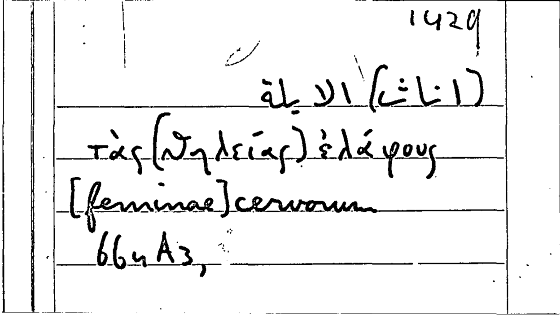 1429
(اناث) الايلة
τὰς (θηλείας) ἐλάφους
[feminae] cervorum
664 A3,